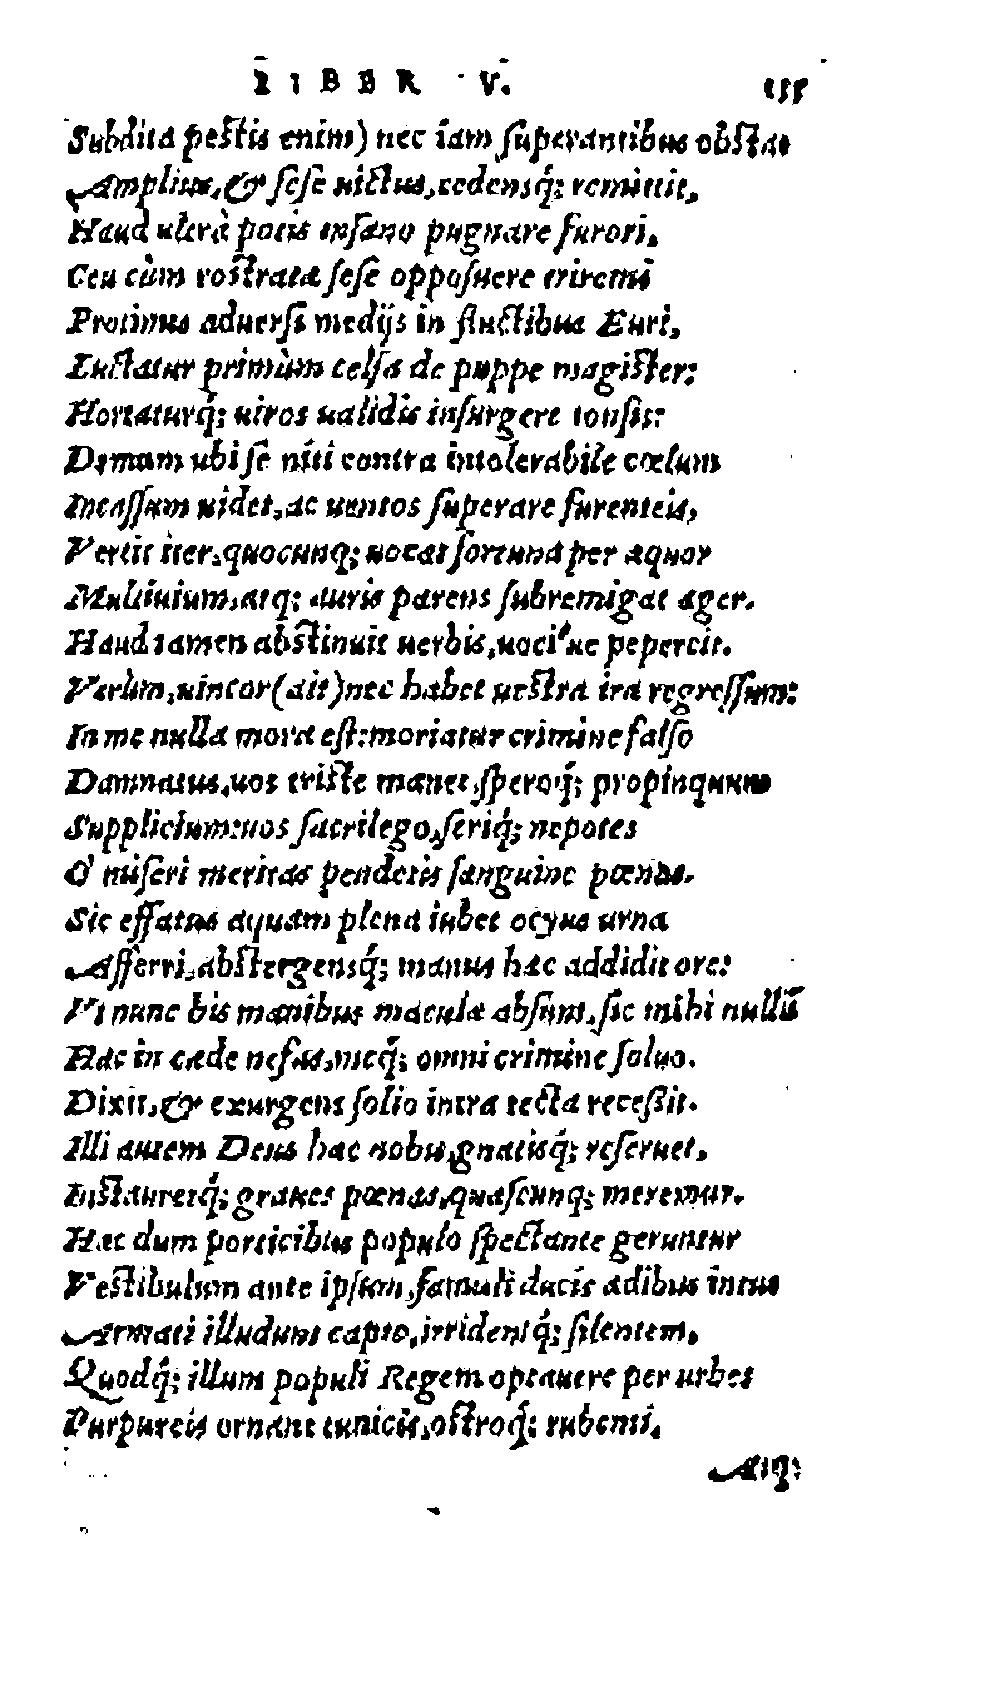 LIBER V. 155
Subdita pestis enim) nec iam superantibus obstat
Amplius, & sese uictus, cedensq́; remittit,
Haud ultrà potis insano pugnare furori.
Ceu cùm rostratæ sese opposuere triremi
Protinus aduersi medijs in fluctibus Euri,
Luctatur primùm celsa de puppe magister:
Hortaturq́; uiros ualidis insurgere tonsis:
Demum ubi se niti contra intolerabile cœlum
Incassum uidet, ac uentos superare furenteis,
Vertit iter, quocunq; uocat fortuna per æquor
Multiuium, atq; auris parens subremigat æger.
Haud tamen abstinuit uerbis, uociue pepercit.
Verùm, uincor (ait) nec habet uestra ira regressum:
In me nulla mora est: moriatur crimine falso
Damnatus, uos triste manet, speroq́; propinquum
Supplicium: uos sacrilego, feriq́; nepotes
O' miseri meritas pendetis sanguine pœnas.
Sic effatus aquam plena iubet ocyus urna
Afferri, abstergensq́; manus hæc addidit ore:
Vt nunc his manibus maculæ absunt, sic mihi nullũ
Hac in cæde nefas, meq́; omni crimine soluo.
Dixit, & exurgens solio intra tecta recessit.
Illi autem Deus hæc nobis, gnatisq́; reseruet,
Instauretq́; graues pœnas, quascunq; meremur.
Hæc dum porticibus populo spectante geruntur
Vestibulum ante ipsum, famuli ducis ædibus intus
Armati illudunt capto, irridentq́; silentem,
Quodq́; illum populi Regem optauere per urbes
Purpureis ornant tunicis, ostroq́; rubenti,
Atq;